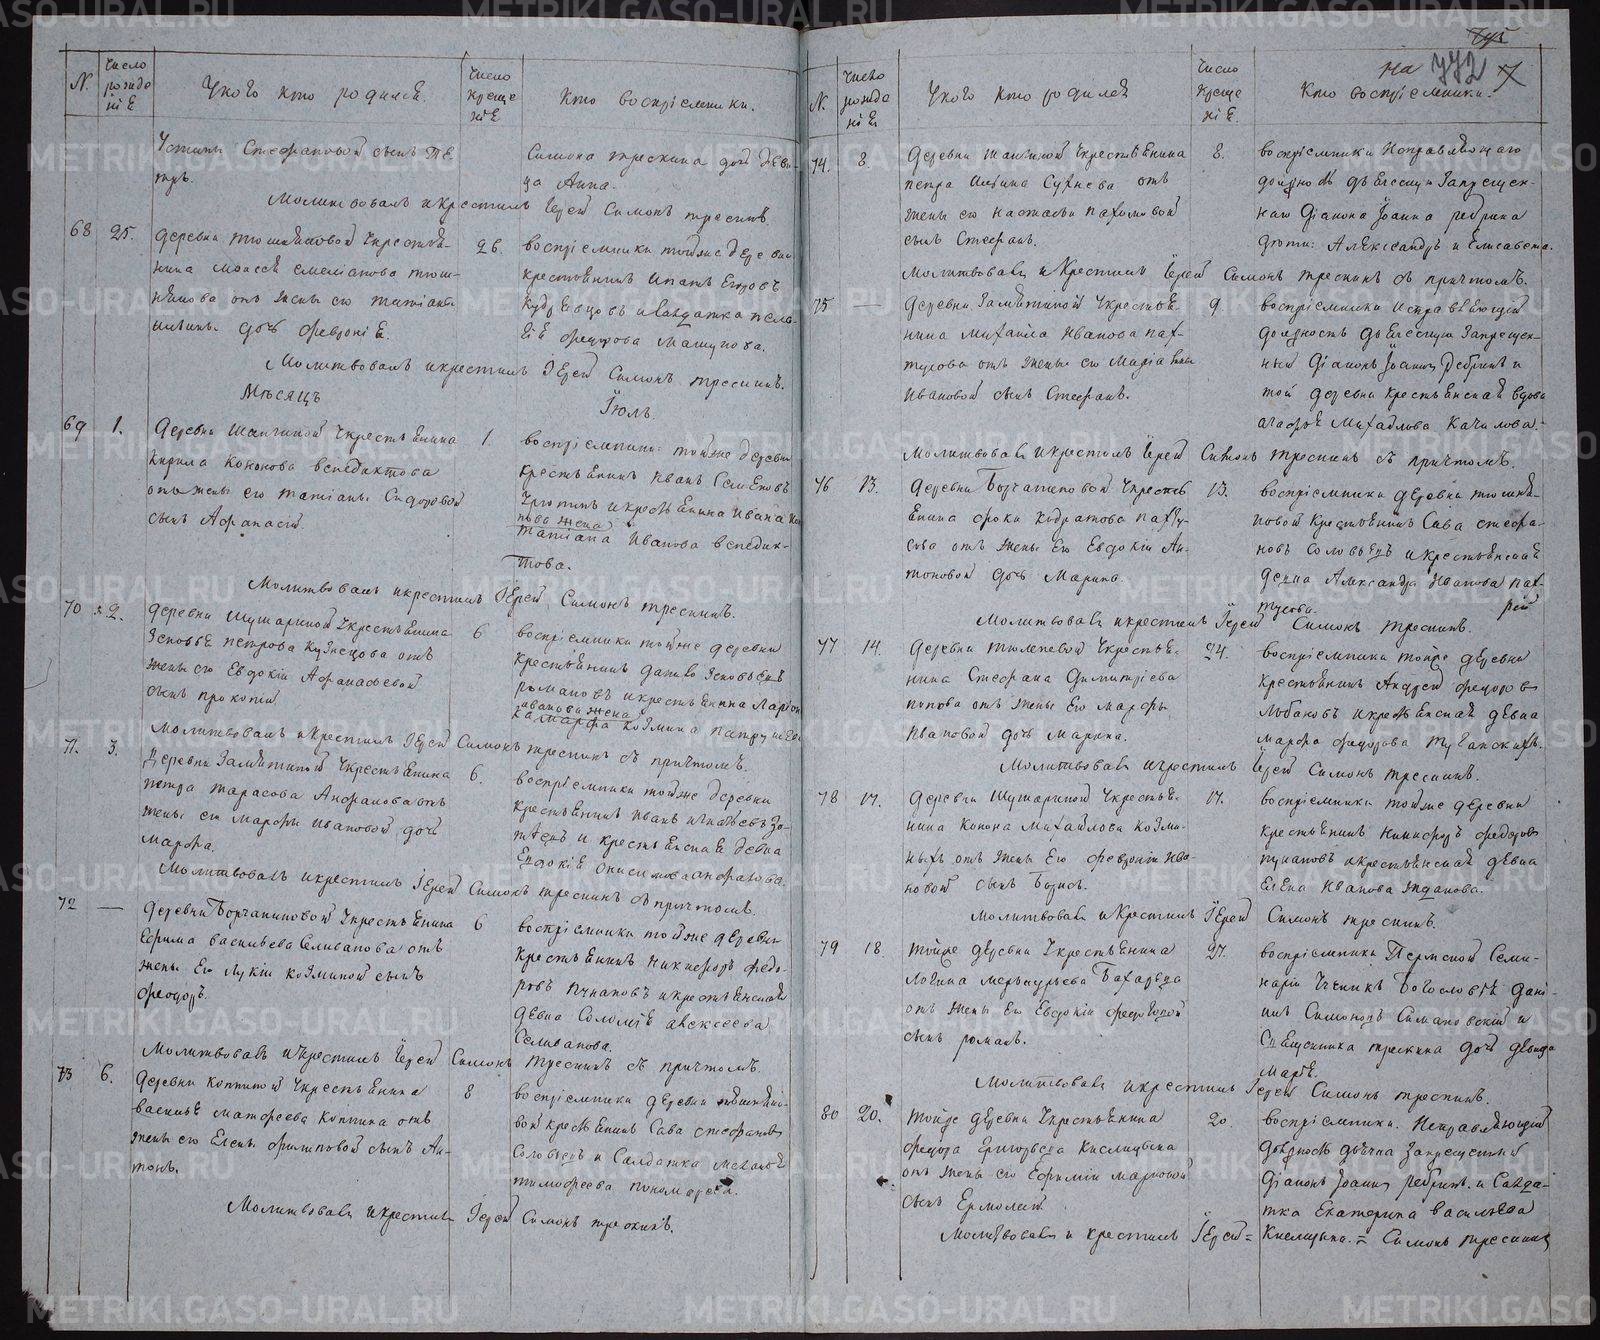 N. Число рожде нiе У кого кто родился. Число креще нiе Кто воспрiемники.
Устины Стефановой сынъ Пе
тръ.
Симона Трескина дочь деви
ца Анна.
Молитвовалъ и крестилъ Iерей Симонъ Трескинъ.
68 25. Деревни Тюшняковой у крестьа-
нина Моисеа Емелiанова Тюш-
някова отъ жены его Татiаны
дочь Февронiа.
26. воспрiемники тойже деревни
крестьянинъ Игнатъ Егоровъ
Кудрявцовъ и салдатка Пела-
гiа Федорова Машукова.
Молитвовалъ и крестилъ Iерей Симонъ Трескинъ.
Месяцъ Iюль.
69 1. Деревни Шангиной у крестьянина
Кирила Кононова Венедиктова
отъ жены его Татiаны Сидоровой
сынъ Афанасiй.
1. воспрiемники: тойже деревни
крестьянинъ Иванъ Семеновъ
и крестьянина Ивана
жена
Татiана Иванова Венедик-
това.
Молитвовалъ и крестилъ Iерей Симонъ Трескинъ.
70 2. Деревни Шушариной у крестьянина
Зеновья Петрова Кузнецова отъ
жены его Евдокiи Афанасьевой
сынъ Прокопiй.
6 воспрiемники тойже деревни
крестьянинъ Данило Зеновьевъ
Романовъ и крестьянина Ларiона
Иванова жена
Марфа Козмина
Молитвовалъ и крестилъ Iерей Симонъ Трескинъ съ причтомъ.
71. 3. Деревни Замятиной у крестьянина
Петра Тарасова Анфалова отъ
жены его Марфы Ивановой дочь
Марфа.
6. воспрiемники тойже деревни
крестьянинъ Иванъ Игнатьевъ За-
и крестьянская девица
Евдокiя Онисимова Анфалова.
Молитвовалъ и крестилъ Iерей Симонъ Трескинъ съ причтомъ.
72 — Деревни Борчаниновой у крестьянина
Ефима Васильева Селиванова отъ
жены его Лукiи Козминой сынъ
Феодоръ.
6 воспрiемники тойже деревни
крестьянинъ Никифоръ Федо-
ровъ Пупаповъ и крестьянская
девица Соломiя Алексеева
Селиванова.
Молитвовалъ и крестилъ Iерей Симонъ Трескинъ съ причтомъ.
73 6. Деревни Коптиной у крестьянина
Василья Матфеева Коптина отъ
жены его Елены Филиповой сынъ Ан-
тонъ.
8 воспрiемники деревни Тюшняко-
вой крестьянинъ Сава Стефановъ
Соловьевъ и салдатка
Тимофеева Пономарева.
Молитвовалъ и крестилъ Iерей Симонъ Трескинъ.
на 772
N. Число рожде нiе У кого кто родился Число креще нiе. Кто воспрiемники.
74. 8 Деревни Шангиной у крестьянина
Петра Ильина Сухнева отъ
жены его Настасьи Пахомовой
сынъ Стефанъ.
8. воспрiемники Исправляющаго
должность дьячка Запрещен-
наго Дiакона Iоанна Ребрина
дети: Александръ и Елисавета.
Молитвовалъ и крестилъ Iерей Симонъ Трескинъ съ причтомъ.
75 — Деревни Замятиной у крестья-
нина Михайла Иванова Пах-
тусова отъ жены его Марiамны
Ивановой сынъ Стефанъ.
9. воспрiемники Исправляющiй
должность дьячка Запрещен-
ный Дiаконъ Iоаннъ Ребринъ и
той деревни крестьянская вдова
Агафья Михайлова Качалова.
Молитвовалъ и крестилъ Iерей Симонъ Трескинъ съ причтомъ.
76 13. Деревни Борчаниновой у кресть
янина Фрола Кодратова Пахту-
сова отъ жены его Евдокiи Ан-
тоновой дочь Марина.
13. воспрiемники деревни Тюшня-
ковой крестьянинъ Сава Стефа-
новъ Соловьевъ и крестьянская
девица Александра Иванова Пах-
тусова.
Молитвовалъ и крестилъ Iерей Симонъ Трескинъ.
77 14. Деревни Тюленевой у крестья-
нина Стефана Димитрiева
Попова отъ жены его Марфы
Ивановой дочь Марина.
24. воспрiемники тойже деревни
крестьянинъ Андрей Федоровъ
Лобановъ и крестьянская девица
Марфа Федорова
Молитвовалъ и крестилъ Iерей Симонъ Трескинъ.
78 17. Деревни Шушариной у крестья-
нина Конона Михайлова Козми-
ныхъ отъ жены его Февронiи Ива-
новой сынъ Борисъ.
17. воспрiемники тойже деревни
крестьянинъ Никифоръ Федоровъ
Пупаповъ и крестьянская девица
Елена Иванова Жданова.
Молитвовалъ и крестилъ Iерей Симонъ Трескинъ.
79 18. Тойже деревни у крестьянина
Логина Меркурьева Бахарева
отъ жены его Евдокiи Федотовой
сынъ Романъ.
27. воспрiемники Пермской Семи-
нарiи Ученикъ Богословiя Данi-
илъ Симоновъ Симановскiй и
Священника Трескина дочь девица
Марiя.
Молитвовалъ и крестилъ Iерей Симонъ Трескинъ.
80 20. Тойже деревни у крестьянина
Федора Григорьева Кислицына
отъ жены его Ефимiи Марковой
сынъ Ермолай.
20. воспрiемники. Исправляющiй
должность дьячка Запрещенный
Дiаконъ Iоаннъ Ребринъ. и Салда-
тка Екатерина Васильева
Кислицына. =
Молитвовалъ и крестилъ Iерей = Симонъ Трескинъ
METRIKI.GASO-URAL.RU